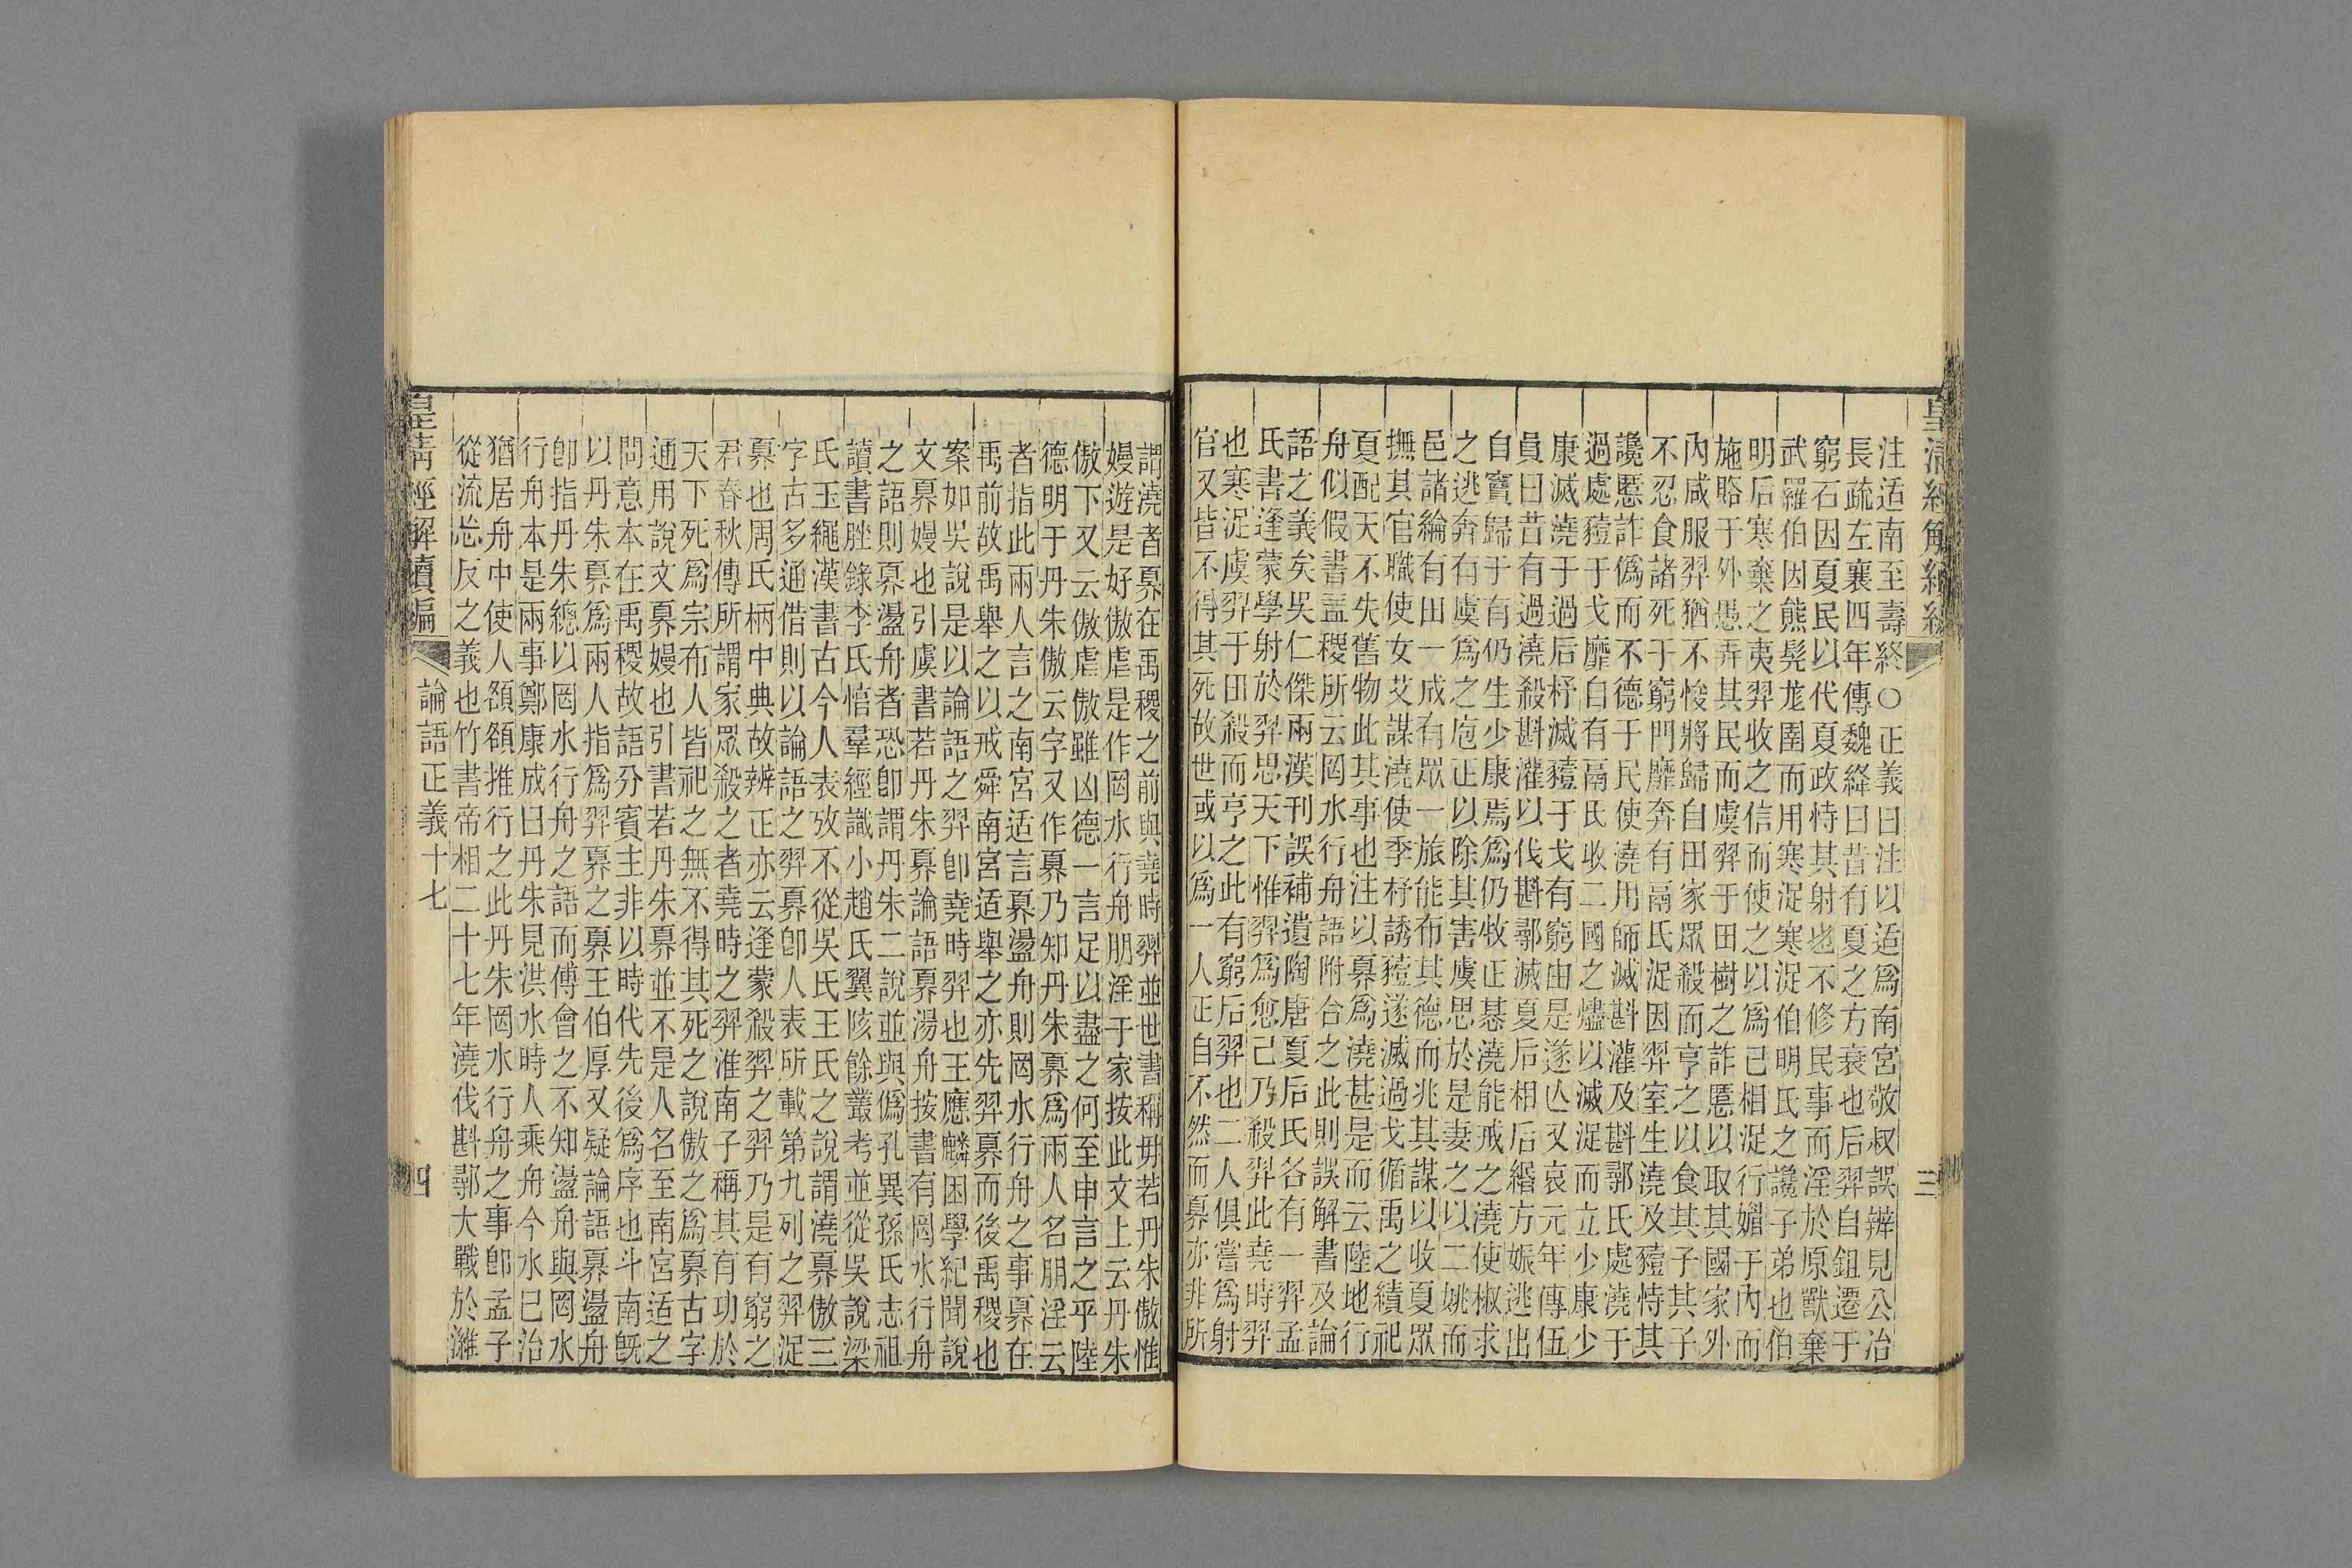 皇清經解續編
三
注适南至壽終○正義曰注以适爲南宮敬叔誤辨見公冶
長疏左襄四年傳魏絳曰昔有夏之方衰也后羿自鉏遷于
窮石因夏民以代夏政恃其射也不修民事而淫於原獸棄
武羅伯因熊髡尨圉而用寒浞寒浞伯明氏之讒子弟也伯
明后寒棄之夷羿收之信而使之以爲己相浞行媚于內而
施賂于外愚弄其民而虞羿于田樹之詐慝以取其國家外
內咸服羿猶不悛將歸自田家眾殺而亨之以食其子其子
不忍食諸死于窮門靡奔有鬲氏浞因羿室生澆及豷恃其
讒慝詐僞而不德于民使澆用師滅斟灌及斟鄩氏處澆于
過處豷于戈靡自有鬲氏收二國之燼以滅浞而立少康少
康滅澆于過后杼滅豷于戈有窮由是遂亾又哀元年傳伍
員曰昔有過澆殺斟灌以伐斟鄩滅夏后相后緡方娠逃出
自竇歸于有仍生少康焉爲仍牧正惎澆能戒之澆使椒求
之逃奔有虞爲之庖正以除其害虞思於是妻之以二姚而
邑諸綸有田一成有眾一旅能布其德而兆其謀以收夏眾
撫其官職使女艾諜澆使季杼誘豷遂滅過戈循禹之績祀
夏配天不失舊物此其事也注以奡爲澆甚是而云陸地行
舟似假書盖稷所云罔水行舟語附合之此則誤解書及論
語之義矣吳仁傑兩漢刊誤補遺陶唐夏后氏各有一羿孟
氏書逢蒙學射於羿思天下惟羿爲愈己乃殺羿此堯時羿
也寒浞虞羿于田殺而亨之此有窮后羿也二人俱嘗爲射
官又皆不得其死故世或以爲一人正自不然而奡亦非所
謂澆者奡在禹稷之前與堯時羿並世書稱毋若丹朱傲惟
嫚遊是好傲虐是作罔水行舟朋淫于家按此文上云丹朱
傲下又云傲虐傲雖凶德一言足以盡之何至申言之乎陸
德明于丹朱傲云字又作奡乃知丹朱奡爲兩人名朋淫云
者指此兩人言之南宮适言奡盪舟則罔水行舟之事奡在
禹前故禹舉之以戒舜南宮适舉之亦先羿奡而後禹稷也
案如吳說是以論語之羿卽堯時羿也王應麟困學紀聞說
文奡嫚也引虞書若丹朱奡論語奡湯舟按書有罔水行舟
之語則奡盪舟者恐卽謂丹朱二說並與僞孔異孫氏志祖
讀書脞錄李氏惇羣經識小趙氏翼陔餘叢考並從吳說梁
氏玉繩漢書古今人表攷不從吳氏王氏之說謂澆奡傲三
字古多通借則以論語之羿奡卽人表所載第九列之羿浞
奡也周氏柄中典故辨正亦云逢蒙殺羿之羿乃是有窮之
君春秋傳所謂家眾殺之者堯時之羿淮南子稱其有功於
天下死爲宗布人皆祀之無不得其死之說傲之爲奡古字
通用說文奡嫚也引書若丹朱奡並不是人名至南宮适之
問意本在禹稷故語分賓主非以時代先後爲序也斗南旣
以丹朱奡爲兩人指爲羿奡之奡王伯厚又疑論語奡盪舟
卽指丹朱總以罔水行舟之語而傅會之不知盪舟與罔水
行舟本是兩事鄭康成曰丹朱見洪水時人乘舟今水已治
猶居舟中使人頟頟推行之此丹朱罔水行舟之事卽孟子
從流忘反之義也竹書帝相二十七年澆伐斟鄩大戰於濰
皇清經解續編
論語正義十七
四